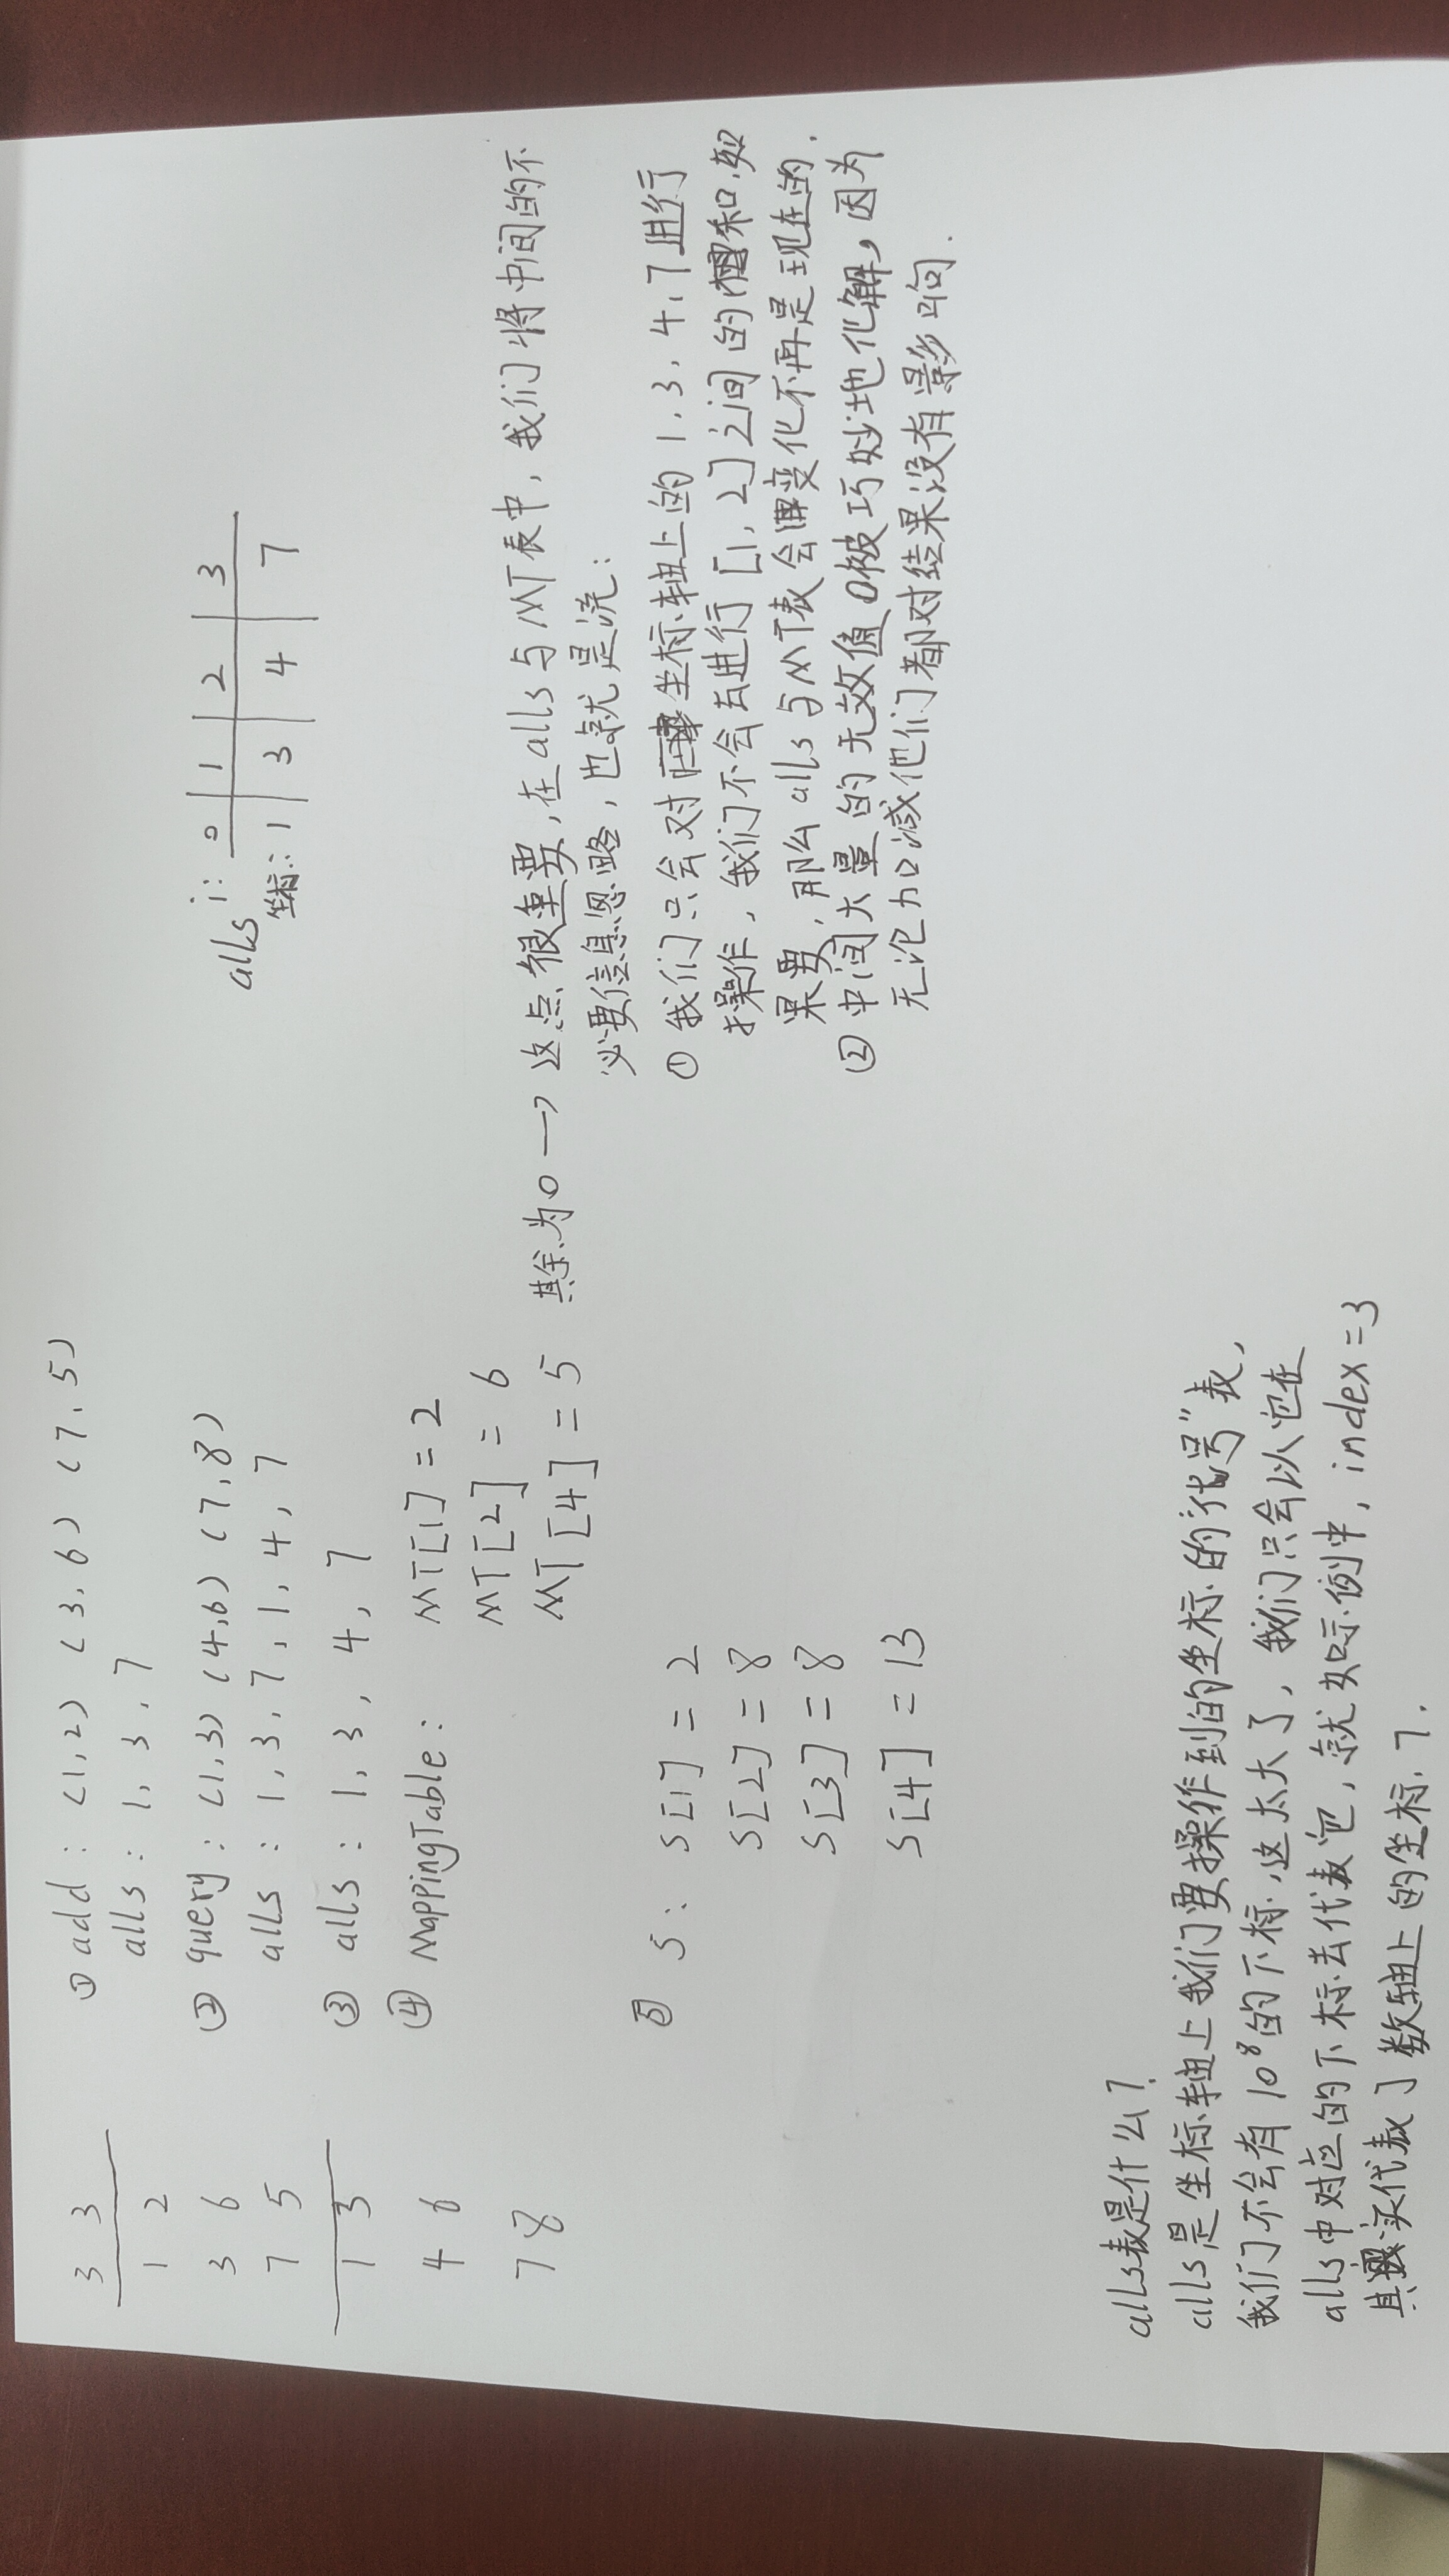 3 3
1 2
3 6
7 5
1 3
4 6
7 8
① add : (1,2) (3,6) (7,5)
alls : 1, 3, 7
② query : (1,3) (4,6) (7,8)
alls : 1, 3, 7, 1, 4, 7
③ alls : 1, 3, 4, 7
④ MappingTable : MT[1] = 2
MT[2] = 6
MT[4] = 5 其余为0 → 这点很重要,在alls与MT表中,我们将中间的不
必要信息忽略,也就是说:
① 我们只会对坐标轴上的1,3,4,7进行
操作,我们不会去进行[1,2]之间的和,如
果要,那么alls与MT表会变化不再是现在的.
② 中间大量的无效值0被巧妙地化解,因为
无论加减他们都对结果没有影响.
⑤ S: S[1] = 2
S[2] = 8
S[3] = 8
S[4] = 13
alls i: 0 1 2 3
坐标: 1 3 4 7
alls表是什么?
alls是坐标轴上我们要操作到的坐标的"代号"表,
我们不会有10⁸的下标,这太大了,我们只会以它在
alls中对应的下标去代表它,就如示例中,index=3
其实代表了数轴上的坐标7.